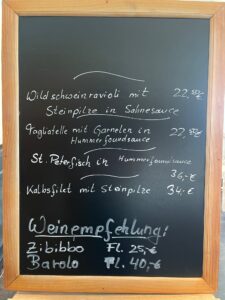 Wildschweinravioli mit 22,50€
Steinpilze in Sahnesauce
Tagliatelle mit Garnelen in 22,50€
Hummerfoundsauce
St. Petersfisch in Hummerfoundsauce
36,-€
Kalbsfilet mit Steinpilze 34,-€
Weinempfehlung:
Zibibbo Fl. 25,-€
Barolo Fl. 40,-€